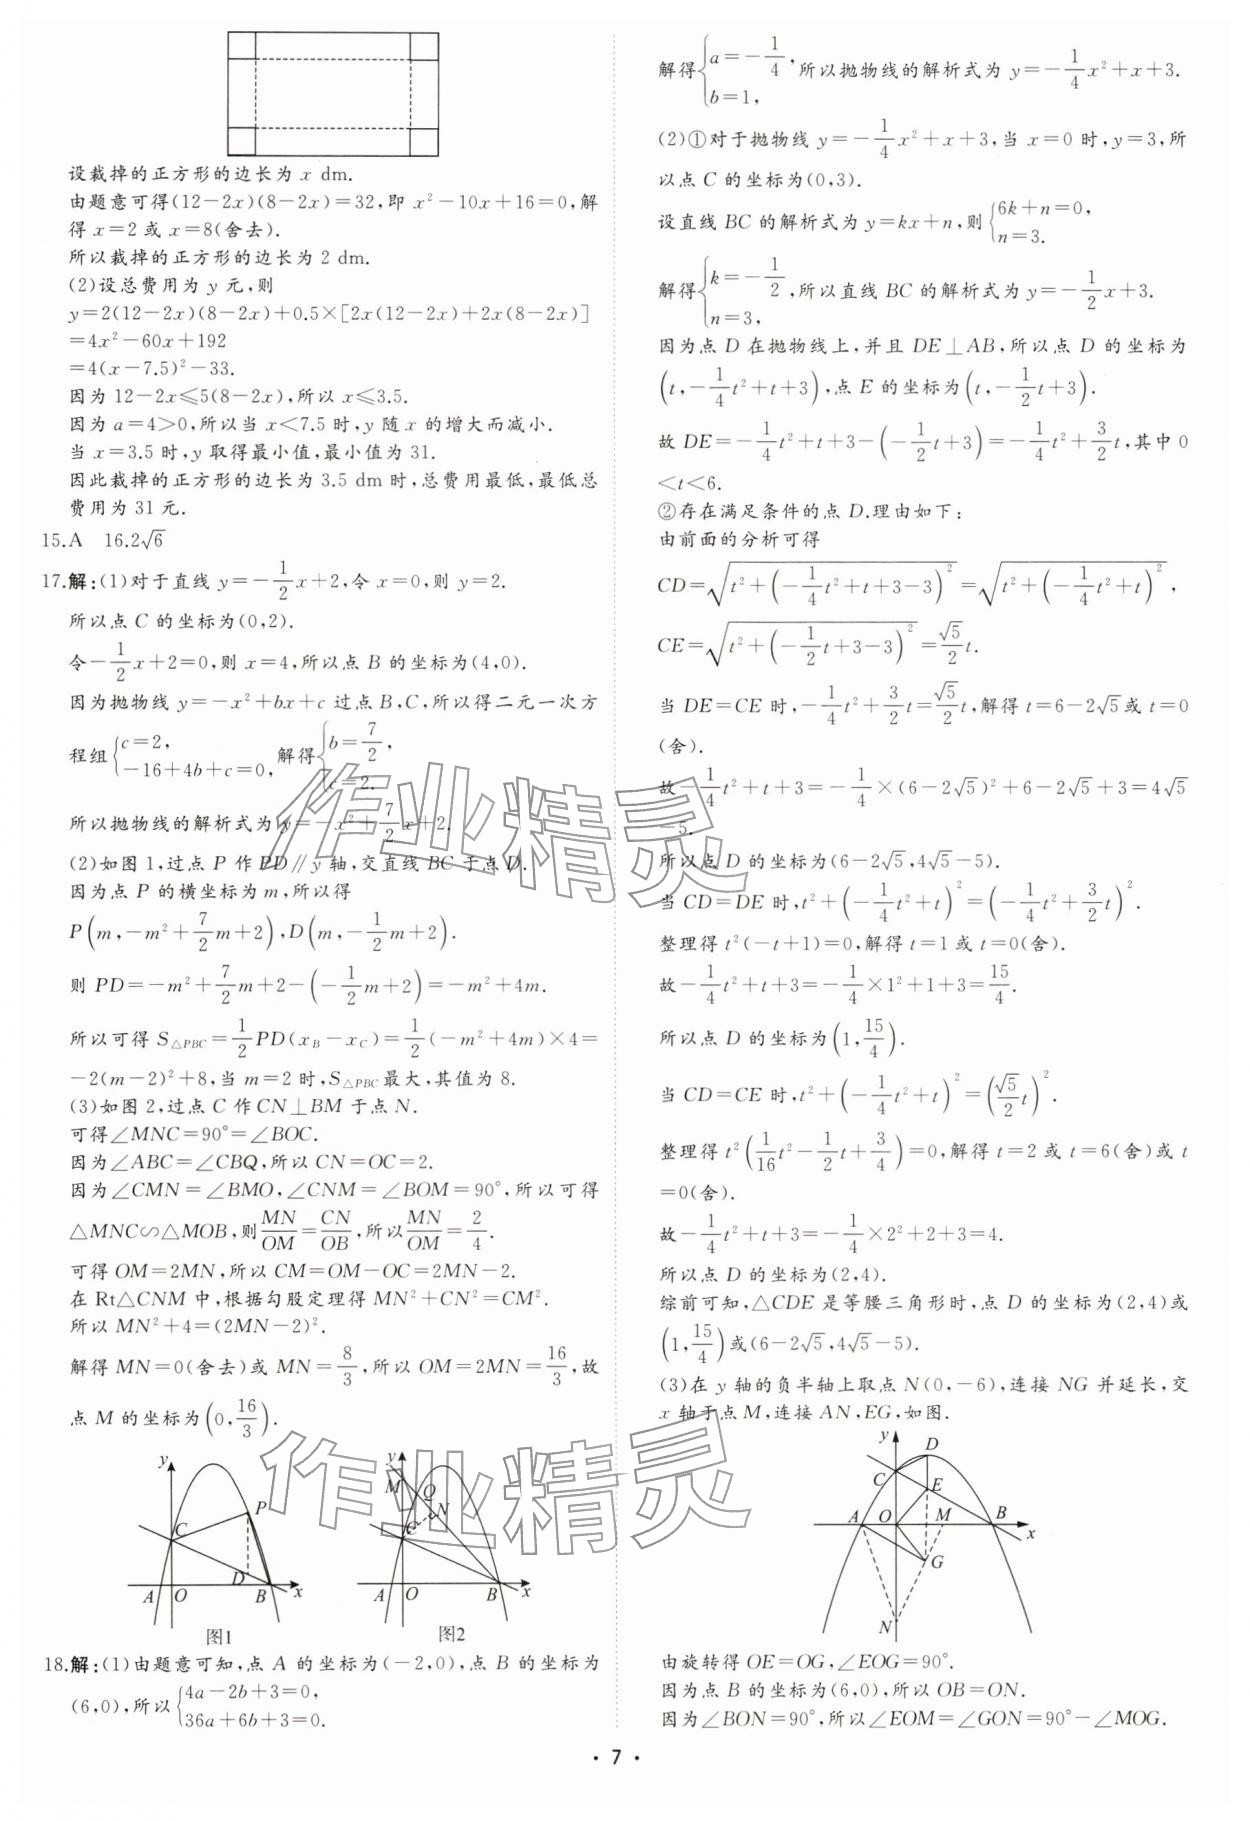 设裁掉的正方形的边长为 x dm.
由题意可得(12-2x)(8-2x)=32,即 x²-10x+16=0,解
得 x=2 或 x=8(舍去).
所以裁掉的正方形的边长为 2 dm.
(2)设总费用为 y 元,则
y=2(12-2x)(8-2x)+0.5×[2x(12-2x)+2x(8-2x)]
=4x²-60x+192
=4(x-7.5)²-33.
因为 12-2x≤5(8-2x),所以 x≤3.5.
因为 a=4>0,所以当 x<7.5 时,y 随 x 的增大而减小.
当 x=3.5 时,y 取得最小值,最小值为 31.
因此裁掉的正方形的边长为 3.5 dm 时,总费用最低,最低总
费用为 31 元.
15.A 16.2√6
17.解:(1)对于直线 y=-1/2x+2,令 x=0,则 y=2.
所以点 C 的坐标为(0,2).
令-1/2x+2=0,则 x=4,所以点 B 的坐标为(4,0).
因为抛物线 y=-x²+bx+c 过点 B,C,所以得二元一次方
程组{c=2, -16+4b+c=0, 解得{b=7/2, c=2.
所以抛物线的解析式为 y=-x²+7/2x+2.
(2)如图 1,过点 P 作 PD∥y 轴,交直线 BC 于点 D.
因为点 P 的横坐标为 m,所以得
P(m,-m²+7/2m+2),D(m,-1/2m+2).
则 PD=-m²+7/2m+2-(-1/2m+2)=-m²+4m.
所以可得 S△PBC=1/2PD(xB-xC)=1/2(-m²+4m)×4=
-2(m-2)²+8,当 m=2 时,S△PBC最大,其值为 8.
(3)如图 2,过点 C 作 CN⊥BM 于点 N.
可得∠MNC=90°=∠BOC.
因为∠ABC=∠CBQ,所以 CN=OC=2.
因为∠CMN=∠BMO,∠CNM=∠BOM=90°,所以可得
△MNC∽△MOB,则MN/OM=CN/OB,所以MN/OM=2/4.
可得 OM=2MN,所以 CM=OM-OC=2MN-2.
在 Rt△CNM 中,根据勾股定理得 MN²+CN²=CM².
所以 MN²+4=(2MN-2)².
解得 MN=0(舍去)或 MN=8/3,所以 OM=2MN=16/3,故
点 M 的坐标为(0,16/3).
y C P D A O B x
图1
y M Q N C A O B x
图2
18.解:(1)由题意可知,点 A 的坐标为(-2,0),点 B 的坐标为
(6,0),所以{4a-2b+3=0, 36a+6b+3=0.
解得{a=-1/4, b=1, 所以抛物线的解析式为 y=-1/4x²+x+3.
(2)①对于抛物线 y=-1/4x²+x+3,当 x=0 时,y=3,所
以点 C 的坐标为(0,3).
设直线 BC 的解析式为 y=kx+n,则{6k+n=0, n=3.
解得{k=-1/2, n=3, 所以直线 BC 的解析式为 y=-1/2x+3.
因为点 D 在抛物线上,并且 DE⊥AB,所以点 D 的坐标为
(t,-1/4t²+t+3),点 E 的坐标为(t,-1/2t+3).
故 DE=-1/4t²+t+3-(-1/2t+3)=-1/4t²+3/2t,其中 0
<t<6.
②存在满足条件的点 D.理由如下:
由前面的分析可得
CD=√(t²+(-1/4t²+t+3-3)²)=√(t²+(-1/4t²+t)²),
CE=√(t²+(-1/2t+3-3)²)=√5/2t.
当 DE=CE 时,-1/4t²+3/2t=√5/2t,解得 t=6-2√5或 t=0
(舍).
故-1/4t²+t+3=-1/4×(6-2√5)²+6-2√5+3=4√5
-5.
所以点 D 的坐标为(6-2√5,4√5-5).
当 CD=DE 时,t²+(-1/4t²+t)²=(-1/4t²+3/2t)².
整理得 t²(-t+1)=0,解得 t=1 或 t=0(舍).
故-1/4t²+t+3=-1/4×1²+1+3=15/4.
所以点 D 的坐标为(1,15/4).
当 CD=CE 时,t²+(-1/4t²+t)²=(√5/2t)².
整理得 t²(1/16t²-1/2t+3/4)=0,解得 t=2 或 t=6(舍)或 t
=0(舍).
故-1/4t²+t+3=-1/4×2²+2+3=4.
所以点 D 的坐标为(2,4).
综前可知,△CDE 是等腰三角形时,点 D 的坐标为(2,4)或
(1,15/4)或(6-2√5,4√5-5).
(3)在 y 轴的负半轴上取点 N(0,-6),连接 NG 并延长,交
x 轴于点 M,连接 AN,EG,如图.
y D C E A O M B x G N
由旋转得 OE=OG,∠EOG=90°.
因为点 B 的坐标为(6,0),所以 OB=ON.
因为∠BON=90°,所以∠EOM=∠GON=90°-∠MOG.
· 7 ·
作业精灵
作业精灵